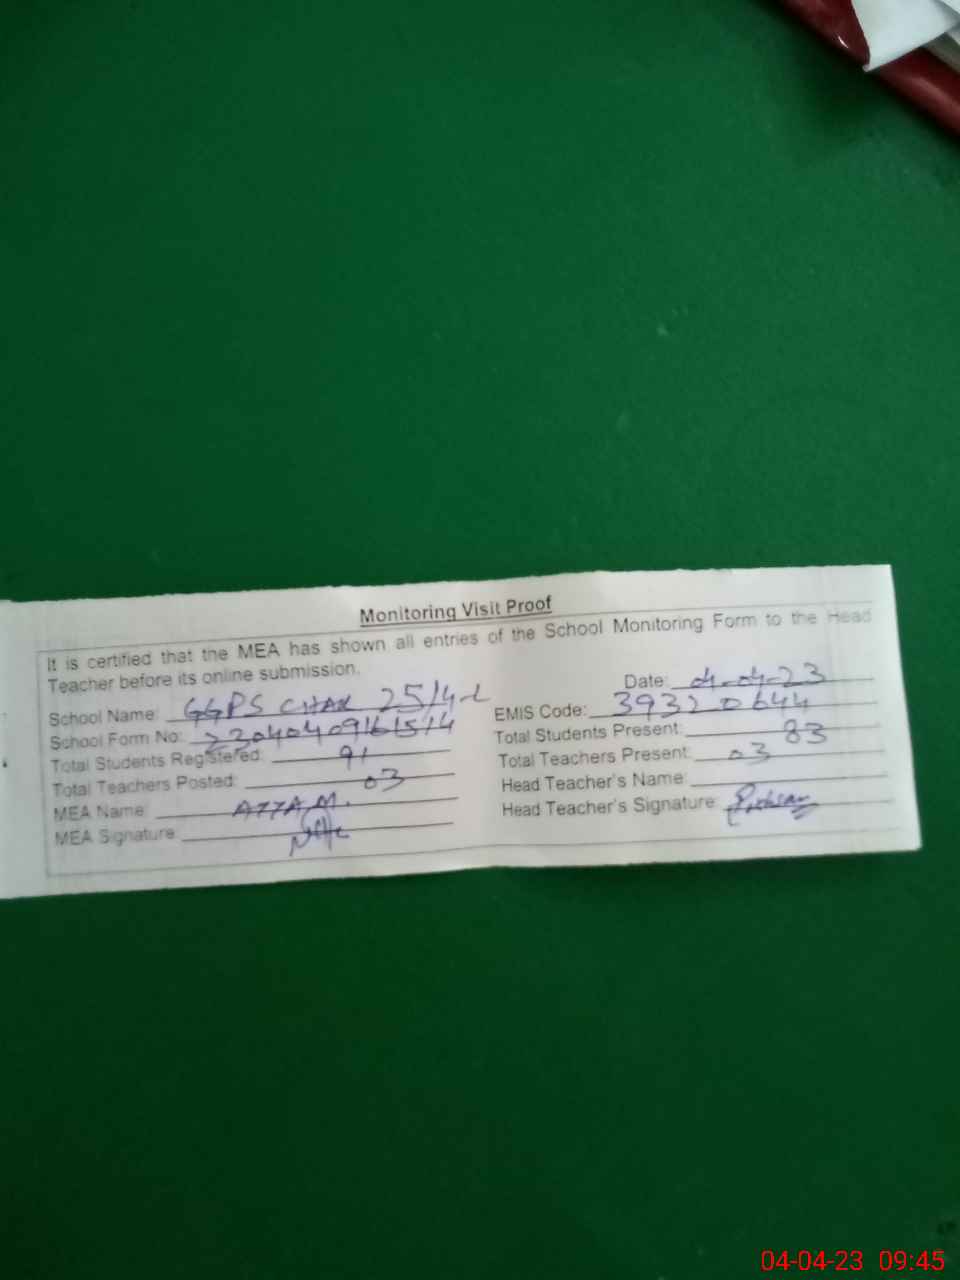 Monitoring Visit Proof
It is certified that the MEA has shown all entries of the School Monitoring Form to the Head
Teacher before its online submission.
Date: 04-04-23
School Name: GGPS CHAK 25/4-L
EMIS Code: 39320644
School Form No: 23040409161514
Total Students Present: 83
Total Students Registered: 91
Total Teachers Present: 03
Total Teachers Posted: 03
Head Teacher's Name:
MEA Name: AZZAM.
Head Teacher's Signature:
MEA Signature
04-04-23 09:45